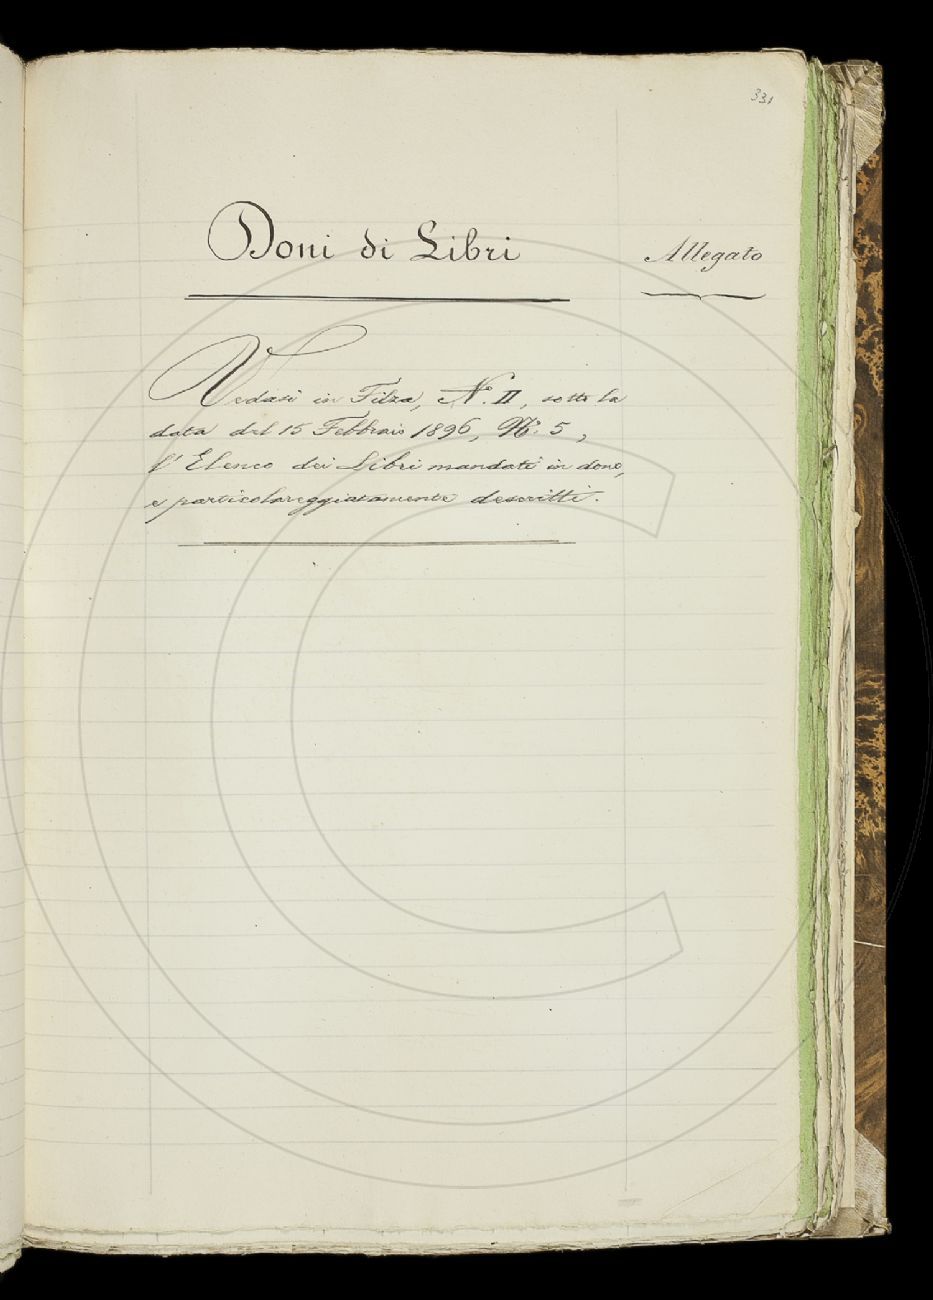 331
Doni di Libri
Allegato
Vedasi in Filza, N.º II, sotto la
data del 15 Febbraio 1896, N.º 5,
l'Elenco dei Libri mandati in dono,
e particolareggiatamente descritti.